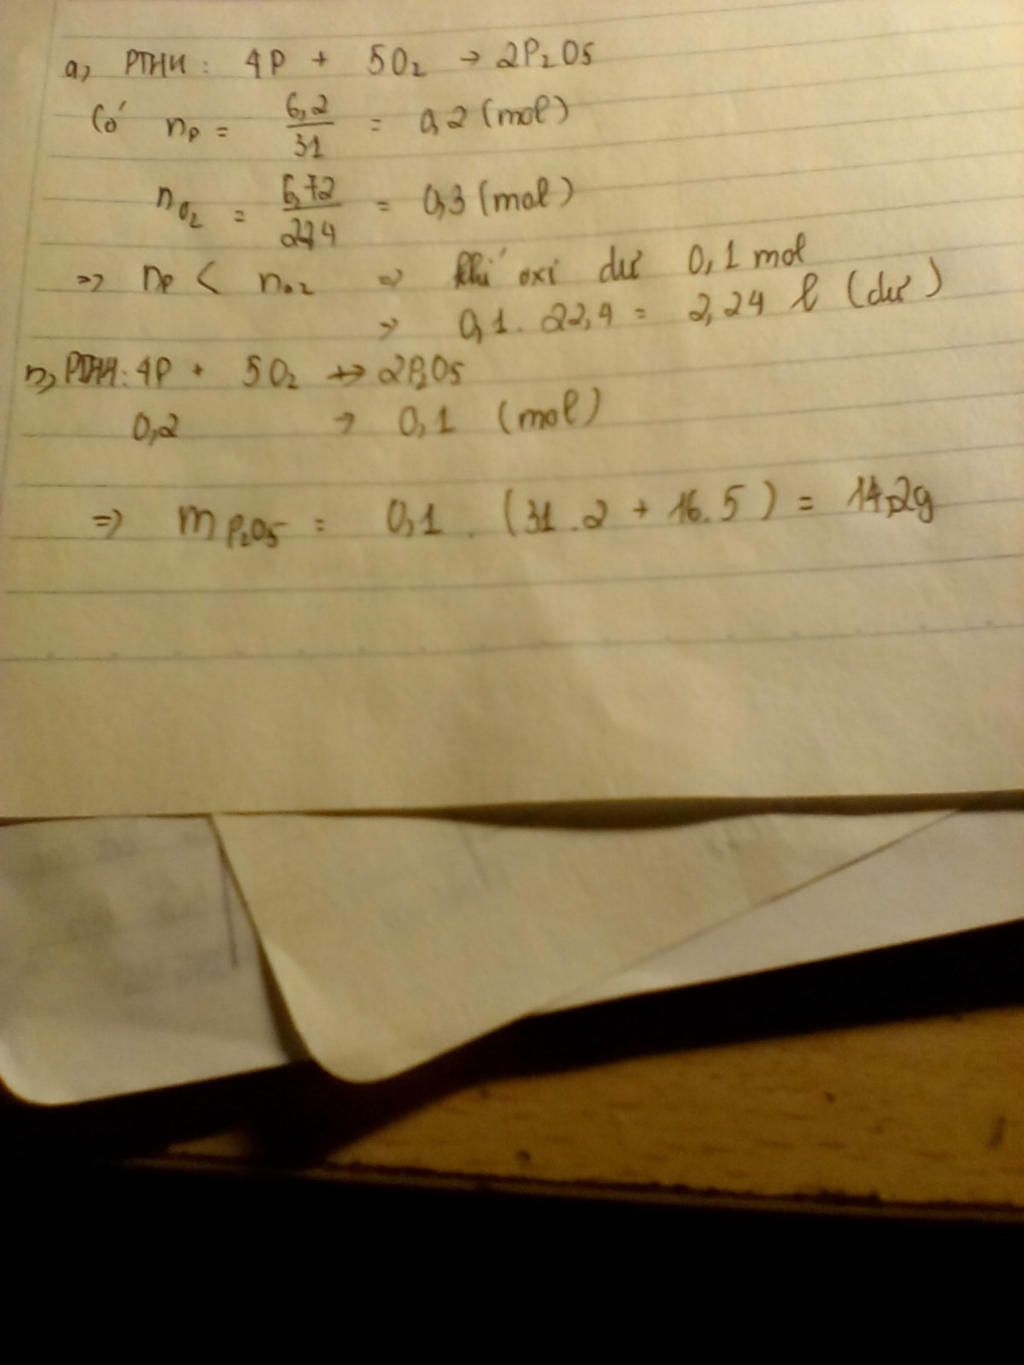 a, PTHH: 4P + 5O₂ → 2P₂O5
Có nP = 6,2/31 = 0,2 (mol)
nO₂ = 6,72/22,4 = 0,3 (mol)
=> nP < nO2 => khí oxi dư 0,1 mol
=> 0,1. 22,4 = 2,24 l (dư)
b, PTHH: 4P + 5O₂ → 2P2O5
0,2 → 0,1 (mol)
=> mP2O5 = 0,1 . (31.2 + 16.5) = 14,2g